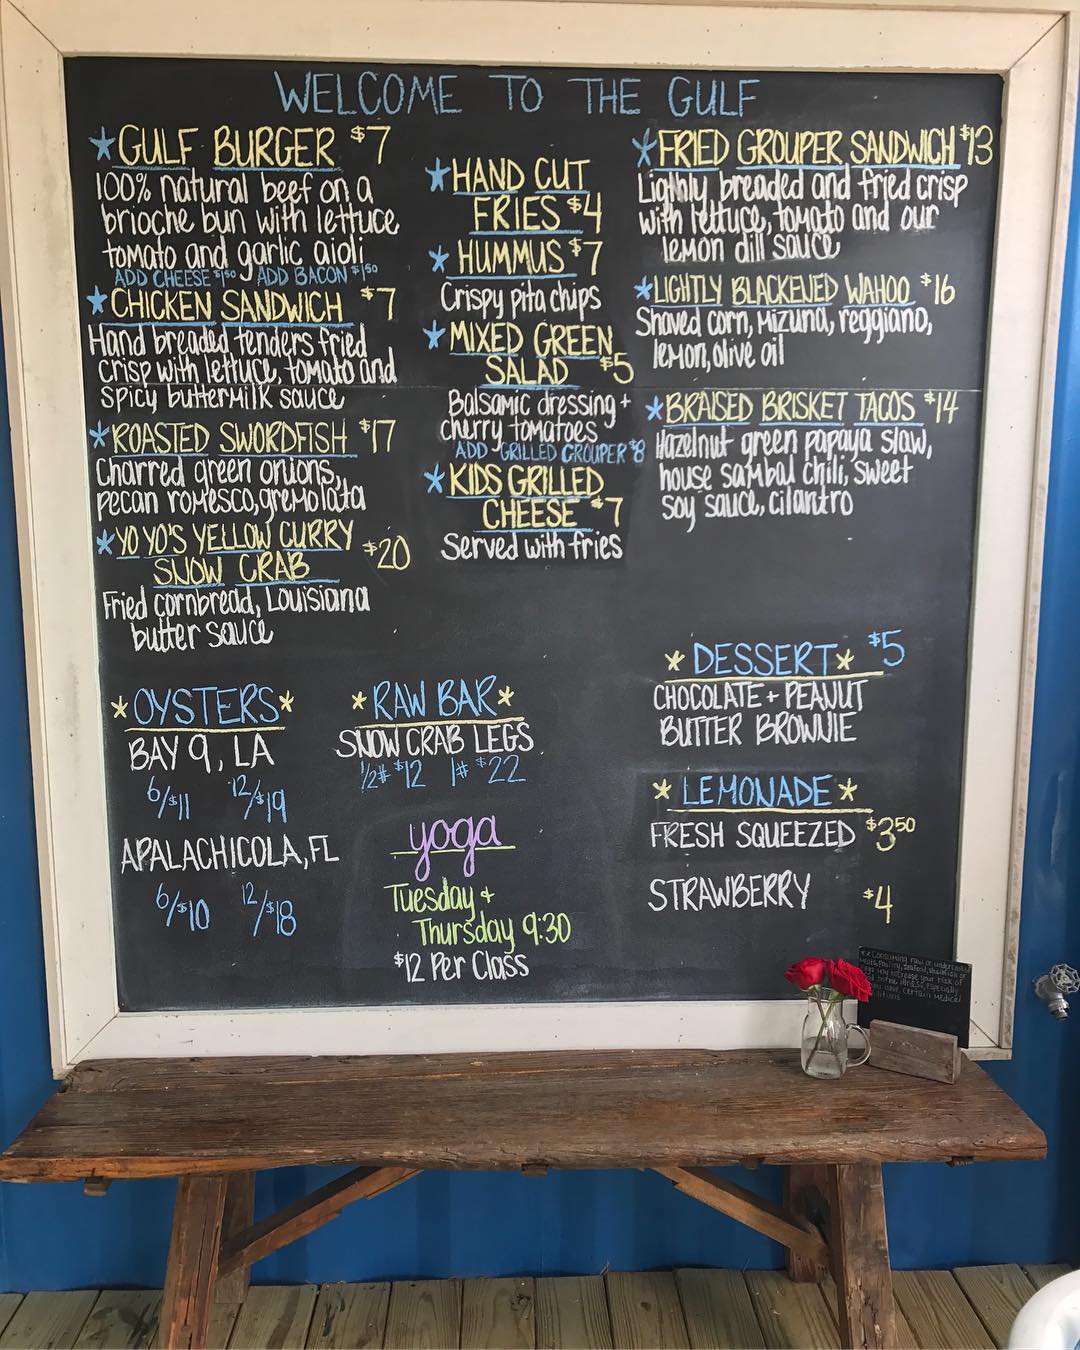 WELCOME TO THE GULF
GULF BURGER $7
100% natural beef on a
brioche bun with lettuce
tomato and garlic aioli
ADD CHEESE $1.50 ADD BACON $1.50
CHICKEN SANDWICH $7
Hand breaded tenders fried
crisp with lettuce, tomato and
spicy buttermilk sauce
ROASTED SWORDFISH $17
Charred green onions,
pecan romesco, gremolata
YO YO'S YELLOW CURRY
SNOW CRAB $20
Fried cornbread, Louisiana
butter sauce
HAND CUT
FRIES $4
HUMMUS $7
Crispy pita chips
MIXED GREEN
SALAD $5
Balsamic dressing +
cherry tomatoes
ADD GRILLED GROUPER $8
KIDS GRILLED
CHEESE $7
Served with fries
FRIED GROUPER SANDWICH $13
Lighly breaded and fried crisp
with lettuce, tomato and our
lemon dill sauce
LIGHTLY BLACKENED WAHOO $16
Shaved corn, Mizuna, reggiano,
lemon, olive oil
BRAISED BRISKET TACOS $14
Hazelnut green papaya slaw,
house sambal chili, sweet
soy sauce, cilantro
*OYSTERS*
BAY 9, LA
6/$11 12/$19
APALACHICOLA, FL
6/$10 12/$18
*RAW BAR*
SNOW CRAB LEGS
1/2# $12 1# $22
yoga
Tuesday +
Thursday 9:30
$12 Per Class
*DESSERT* $5
CHOCOLATE + PEANUT
BUTTER BROWNIE
*LEMONADE*
FRESH SQUEEZED $3.50
STRAWBERRY $4
Consuming raw or